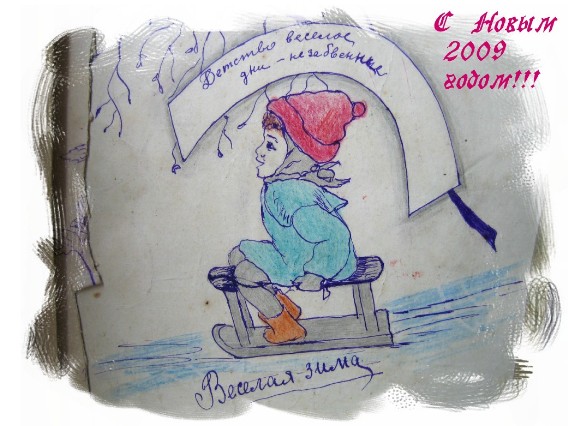 С Новым
2009
годом!!!
Детство веселое,
дни - незабвенные
Веселая зима